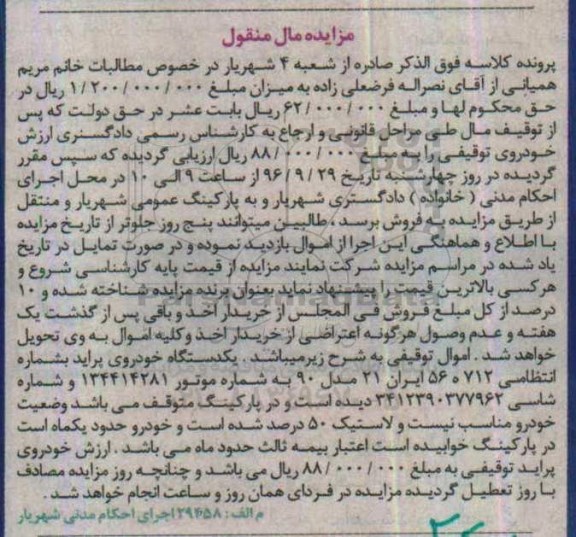 مزایده مال منقول
پرونده کلاسه فوق الذکر صادره از شعبه ۴ شهریار در خصوص مطالبات خانم مریم
همیانی از آقای نصراله فرضعلی زاده به میزان مبلغ ۱/۲۰۰/۰۰۰/۰۰۰ ریال در
حق محکوم لها و مبلغ ۶۲/۰۰۰/۰۰۰ ریال بابت عشر در حق دولت که پس
از توقیف مال طی مراحل قانونی و ارجاع به کارشناس رسمی دادگستری ارزش
خودروی توقیفی را به مبلغ ۸۸/۰۰۰/۰۰۰ ریال ارزیابی گردیده که سپس مقرر
گردیده در روز چهارشنبه تاریخ ۹۶/۹/۲۹ از ساعت ۹ الی ۱۰ در محل اجرای
احکام مدنی ( خانواده ) دادگستری شهریار و به پارکینگ عمومی شهریار و منتقل
از طریق مزایده به فروش برسد ، طالبین میتوانند پنج روز جلوتر از تاریخ مزایده
با اطلاع و هماهنگی این اجرا از اموال بازدید نموده و در صورت تمایل در تاریخ
یاد شده در مراسم مزایده شرکت نمایند مزایده از قیمت پایه کارشناسی شروع و
هرکسی بالاترین قیمت را پیشنهاد نماید بعنوان برنده مزایده شناخته شده و ۱۰
درصد از کل مبلغ فروش فی المجلس از خریدار اخذ و باقی پس از گذشت یک
هفته و عدم وصول هرگونه اعتراضی از خریدار اخذ وکلیه اموال به وی تحویل
خواهد شد . اموال توقیفی به شرح زیرمیباشد . یکدستگاه خودروی پراید بشماره
انتظامی ۷۱۲ ه ۵۶ ایران ۲۱ مدل ۹۰ به شماره موتور ۱۳۴۴۱۴۲۸۱ و شماره
شاسی ۳۴۱۲۳۹۰۳۷۷۹۶۲ دیده است و در پارکینگ متوقف می باشد وضعیت
خودرو مناسب نیست و لاستیک ۵۰ درصد شده است و خودرو حدود یکماه است
در پارکینگ خوابیده است اعتبار بیمه ثالث حدود ماه می باشد . ارزش خودروی
پراید توقیفی به مبلغ ۸۸/۰۰۰/۰۰۰ ریال می باشد و چنانچه روز مزایده مصادف
با روز تعطیل گردیده مزایده در فردای همان روز و ساعت انجام خواهد شد .
م الف : ۲۹۴۵۸ اجرای احکام مدنی شهریار